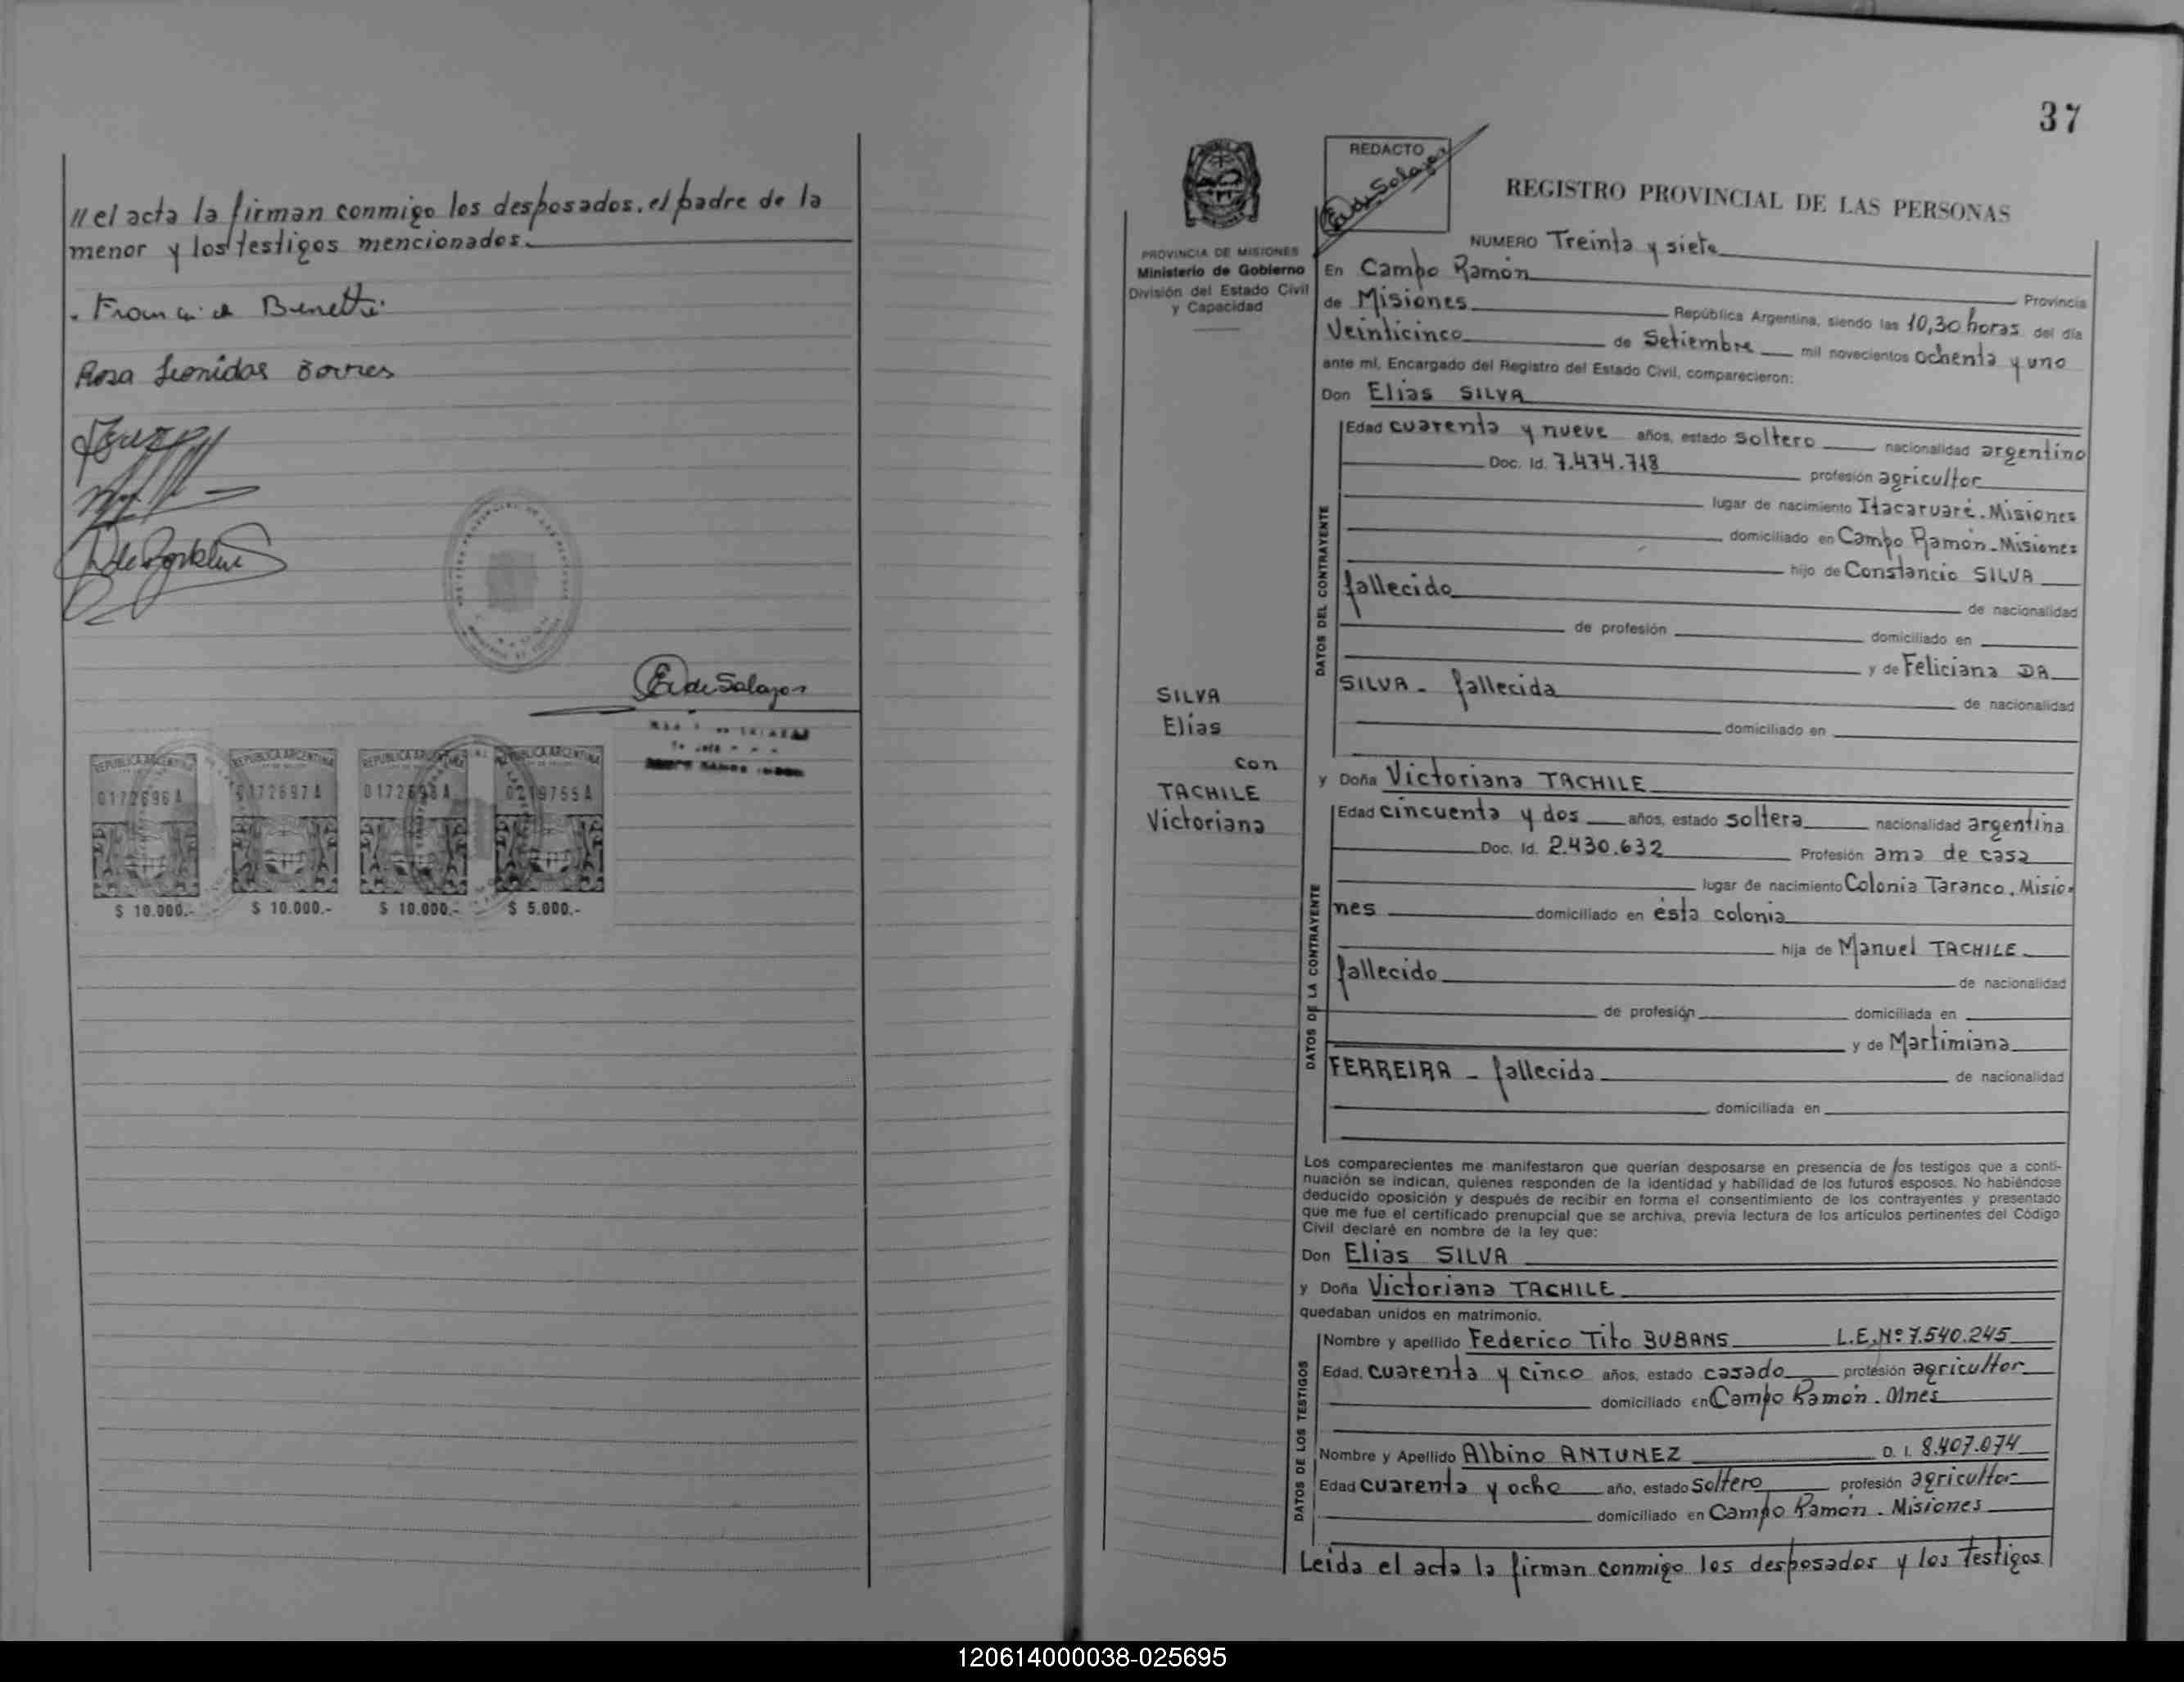 // el acta la firman conmigo los desposados, el padre de la
menor y los testigos mencionados.
Benetti
Rosa Leonidas Torres
E. de Salazar
REPUBLICA ARGENTINA REPUBLICA ARGENTINA REPUBLICA ARGENTINA REPUBLICA ARGENTINA
0172696A 0172697A 0172698A 0219755A
$ 10.000.- $ 10.000.- $ 10.000.- $ 5.000.-
37
REDACTO
REGISTRO PROVINCIAL DE LAS PERSONAS
PROVINCIA DE MISIONES
Ministerio de Gobierno
División del Estado Civil
y Capacidad
SILVA
Elías
con
TACHILE
Victoriana
NUMERO Treinta y siete
En Campo Ramón Provincia
de Misiones República Argentina, siendo las 10,30 horas del día
Veinticinco de Setiembre mil novecientos ochenta y uno
ante mí, Encargado del Registro del Estado Civil, comparecieron:
Don Elías SILVA
DATOS DEL CONTRAYENTE
Edad cuarenta y nueve años, estado soltero nacionalidad argentino
Doc. Id. 7.474.718 profesión agricultor
lugar de nacimiento Itacaruaré. Misiones
domiciliado en Campo Ramón - Misiones
hijo de Constancio SILVA
fallecido de nacionalidad
de profesión domiciliado en
y de Feliciana DA
SILVA - fallecida de nacionalidad
domiciliado en
y Doña Victoriana TACHILE
DATOS DE LA CONTRAYENTE
Edad cincuenta y dos años, estado soltera nacionalidad argentina
Doc. Id. 2.430.632 Profesión ama de casa
lugar de nacimiento Colonia Taranco. Misio-
nes domiciliado en ésta colonia
hija de Manuel TACHILE
fallecido de nacionalidad
de profesión domiciliada en
y de Martimiana
FERREIRA - fallecida de nacionalidad
domiciliada en
Los comparecientes me manifestaron que querían desposarse en presencia de los testigos que a conti-
nuación se indican, quienes responden de la identidad y habilidad de los futuros esposos. No habiéndose
deducido oposición y después de recibir en forma el consentimiento de los contrayentes y presentado
que me fue el certificado prenupcial que se archiva, previa lectura de los artículos pertinentes del Código
Civil declaré en nombre de la ley que:
Don Elías SILVA
y Doña Victoriana TACHILE
quedaban unidos en matrimonio.
DATOS DE LOS TESTIGOS
Nombre y apellido Federico Tito BUBANS L.E.Nº 7.540.245
Edad, cuarenta y cinco años, estado casado profesión agricultor
domiciliado en Campo Ramón. Mnes
Nombre y Apellido Albino ANTUNEZ D. I. 8.407.074
Edad cuarenta y ocho año, estado Soltero profesión agricultor
domiciliado en Campo Ramón - Misiones
Leída el acta la firman conmigo los desposados y los testigos
120614000038-025695